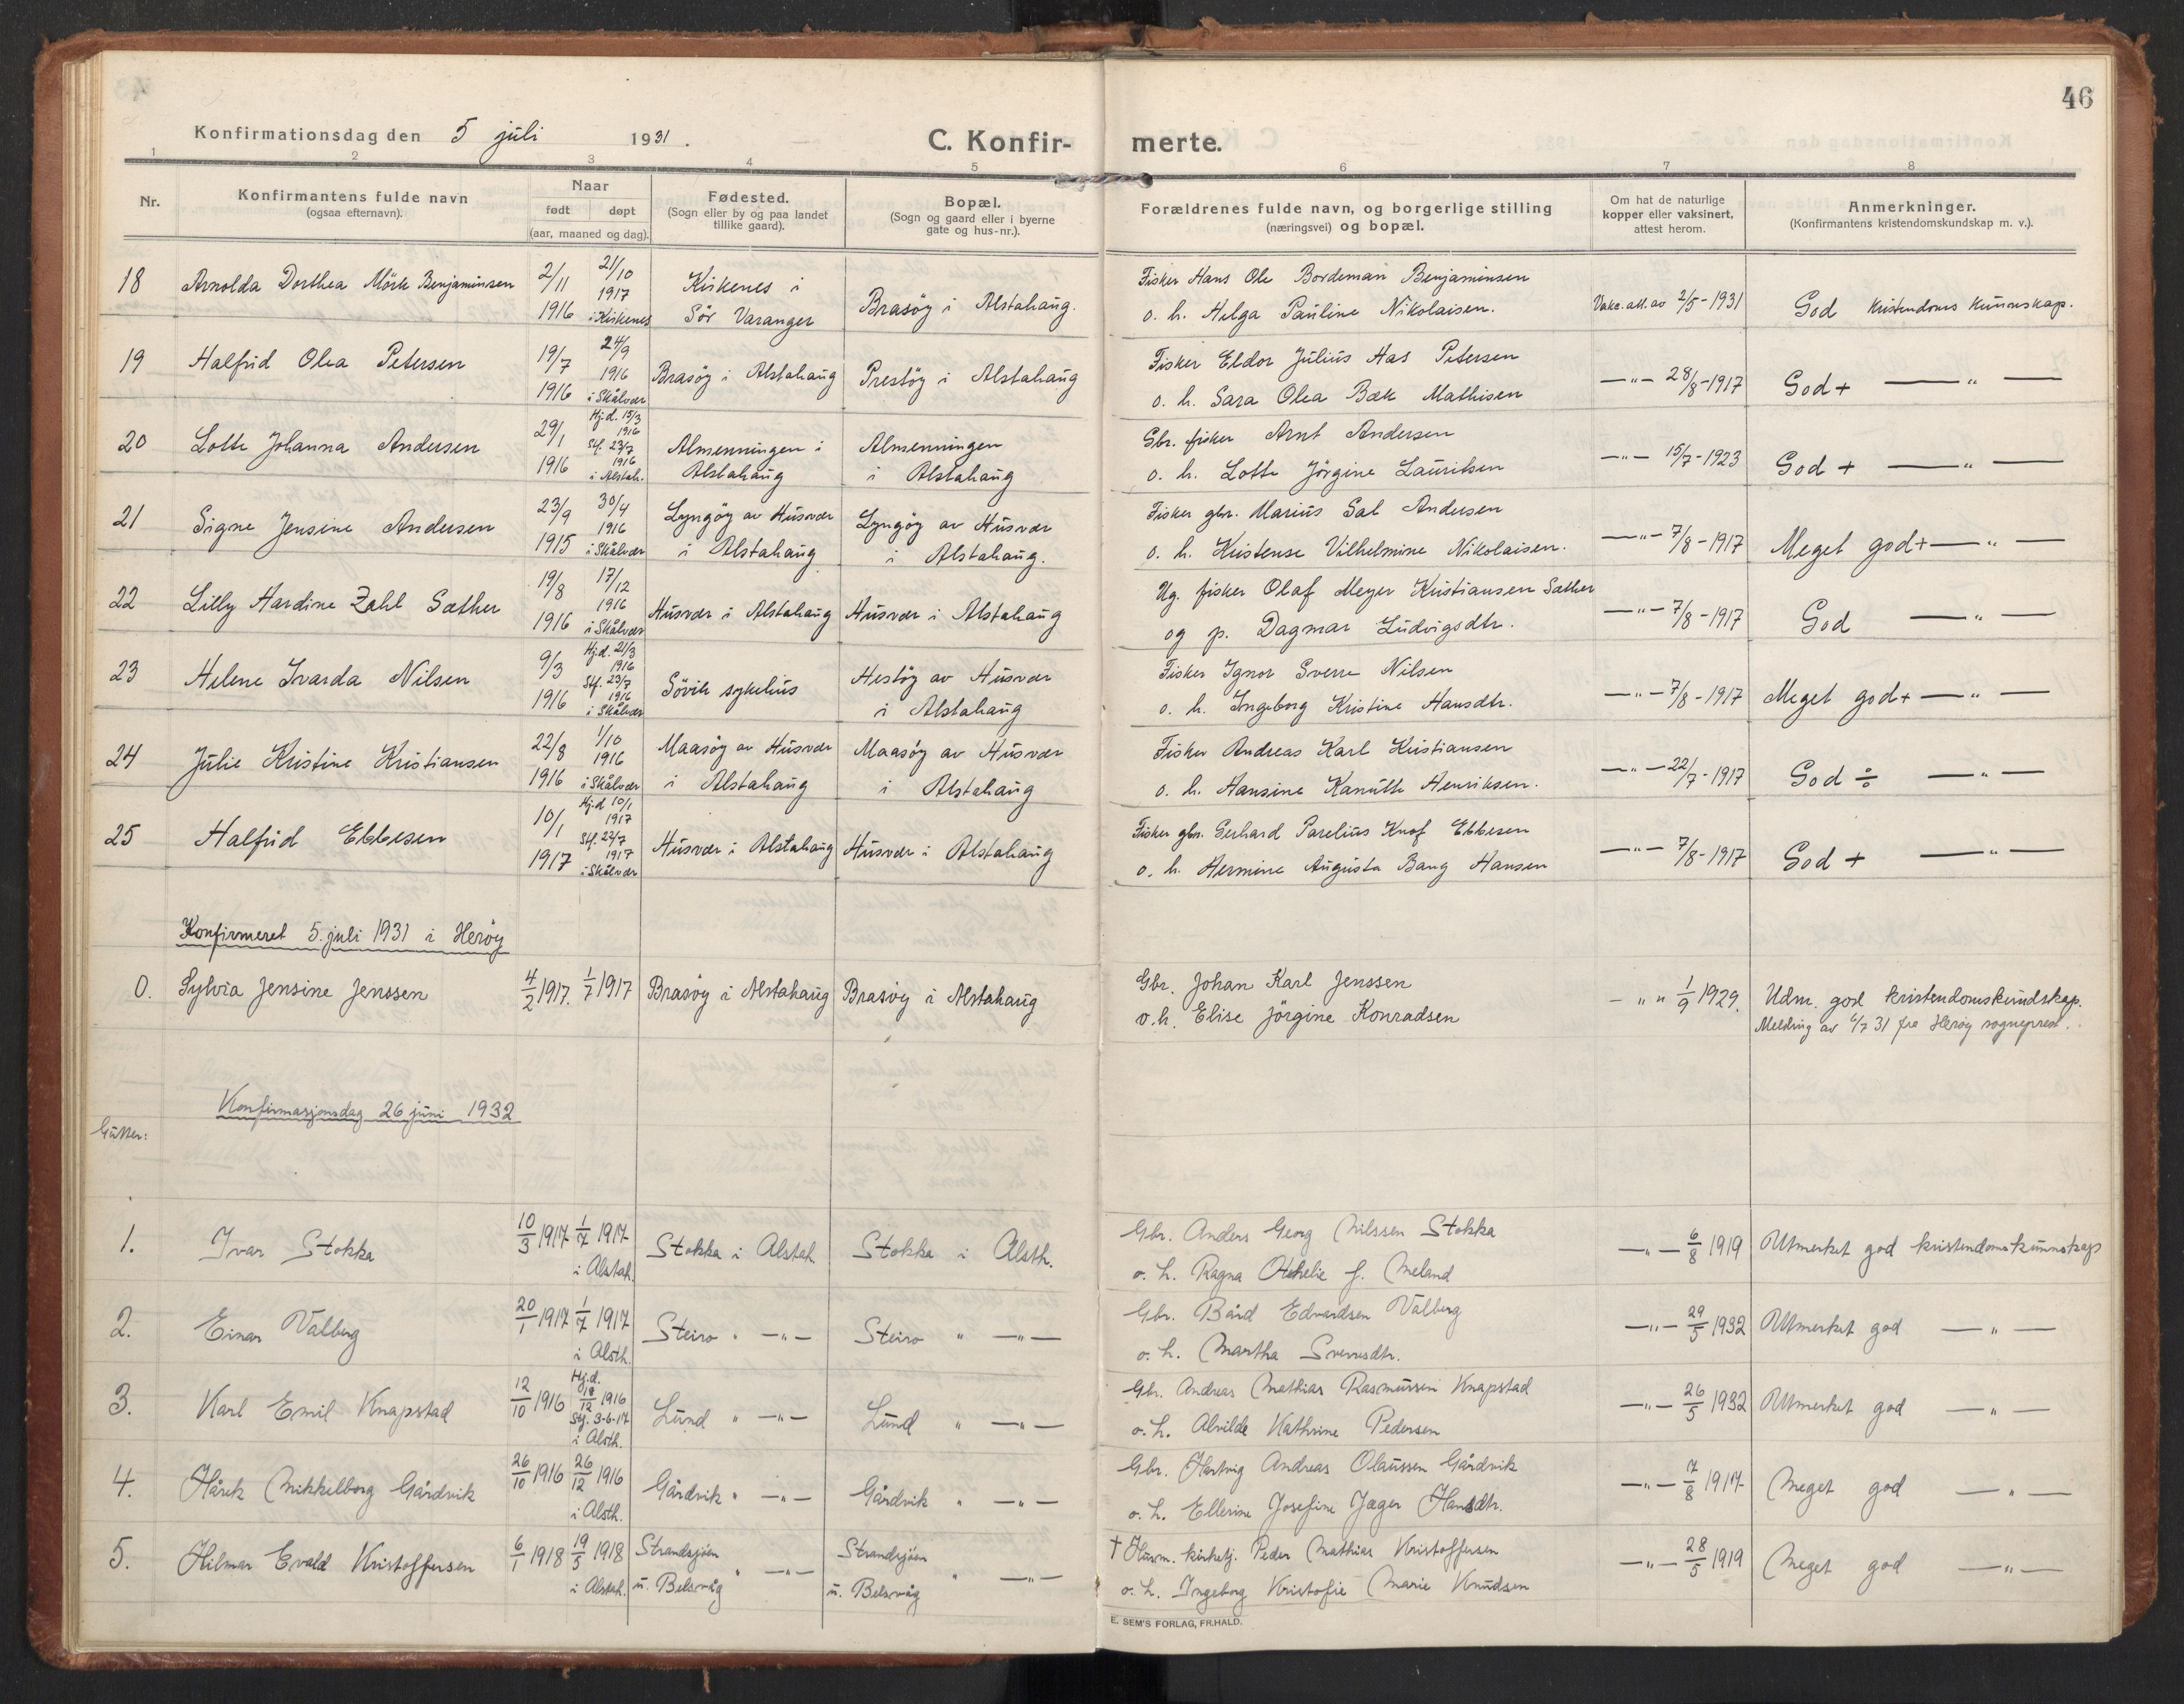 46
Konfirmationsdag den 5 juli 1931.
C. Konfir- merte.
1 2 3 4 5 6 7 8
Nr.
Konfirmantens fulde navn
(ogsaa efternavn).
Naar
født døpt
(aar, maaned og dag).
Fødested.
(Sogn eller by og paa landet
tillike gaard).
Bopæl.
(Sogn og gaard eller i byerne
gate og hus-nr.).
Forældrenes fulde navn, og borgerlige stilling
(næringsvei) og bopæl.
Om hat de naturlige
kopper eller vaksinert,
attest herom.
Anmerkninger.
(Konfirmantens kristendomskundskap m. v.).
18 Arnolda Dorthea Mörk Benjaminsen 2/11 1916 21/10 1917 i Kirkenes
Kirkenes i
Sör Varanger
Brasöy i Alstahaug.
Fisker Hans Ole Bordeman Benjaminsen
o. h. Helga Pauline Nikolaisen.
Vakc. att. av 2/5-1931 God kristendoms kunnskap.
19 Halfrid Olea Petersen 19/7 1916 24/9 1916 i Skålvær
Brasöy i Alstahaug Prestöy i Alstahaug
Fisker Eldor Julius Has Petersen
o. h. Sara Olea Bæk Mathisen
—"— 28/8-1917 God + —"—
20 Lotte Johanna Andersen 29/1 1916 Hj.d. 15/3 1916 Stf. 23/7 1916 i Alstah.
Almenningen i
Alstahaug
Almenningen
i Alstahaug
Gbr. fisker Arnt Andersen
o. h. Lotte Jörgine Lauritsen
—"— 15/7-1923 God + —"—
21 Signe Jensine Andersen 23/9 1915 30/4 1916 i Skålvær
Lyngöy av Husvær
i Alstahaug
Lyngöy av Husvær
i Alstahaug.
Fisker gbr. Marius Sal Andersen
o. h. Kristense Vilhelmine Nikolaisen.
—"— 7/8-1917 Meget god + —"—
22 Lilly Hardine Zahl Sæther 19/8 1916 17/12 1916 i Skålvær
Husvær i Alstahaug Husvær i Alstahaug
Ug. fisker Olaf Meyer Kristiansen Sæther
og p. Dagmar Ludvigsdtr.
—"— 7/8-1917 God —"—
23 Helene Ivarda Nilsen 9/3 1916 Hj.d. 21/3 1916 Stf. 23/7 1916 i Skålvær
Sövik sykehus
Hestöy av Husvær
i Alstahaug
Fisker Ignor Sverre Nilsen
o. h. Ingeborg Kristine Hansdtr.
—"— 7/8-1917 Meget god + —"—
24 Julie Kristine Kristiansen 22/8 1916 1/10 1916 i Skålvær
Maasöy av Husvær
i Alstahaug
Maasöy av Husvær
i Alstahaug
Fisker Andreas Karl Kristiansen
o. h. Hansine Kanutte Henriksen.
—"— 22/7-1917 God ÷ —"—
25 Halfrid Ebbesen 10/1 1917 Hj.d 10/1 1917 Stf. 22/7 1917 i Skålvær
Husvær i Alstahaug Husvær i Alstahaug
Fisker gbr. Gerhard Parelius Knof Ebbesen
o. h. Hermine Augusta Bang Hansen
—"— 7/8-1917 God + —"—
Konfirmeret 5. juli 1931 i Herøy
0. Sylvia Jensine Jenssen 4/2 1917. 1/7 1917 Brasøy i Alstahaug Brasøy i Alstahaug
Gbr. Johan Karl Jenssen
o.h. Elise Jörgine Konradsen
— " " 1/9 1929. Udm. god kristendomskundskap.
Melding av 6/7 31 fra Herøy sogneprest.
Konfirmasjonsdag 26 juni 1932
Gutter:
1. Ivar Stokka 10/3 1917 1/7 1917 i Alstah.
Stokka i Alstah. Stokka i Alsth.
Gbr. Anders Georg Nilssen Stokka
o. h. Ragna Othelie f. Meland
—"— 6/8 1919 Utmerket god kristendomskunnskap
2. Einar Valberg 20/1 1917 1/7 1917 i Alsth.
Steiro " —"— Steiro " —"—
Gbr. Bård Edvardsen Valberg
o. h. Martha Sverresdtr.
—"— 29/5 1932 Utmerket god —"—
3. Karl Emil Knapstad 12/10 1916 Hj.d. 12/12 1916 Stf. 3-6-17 i Alsth.
Lund " —"— Lund " —"—
Gbr. Andreas Mathias Rasmussen Knapstad
o. h. Alvilde Kathrine Pedersen
—"— 26/5 1932 Utmerket god —"—
4. Hårek Mikkelborg Gårdvik 26/10 1916 26/12 1916 i Alsth.
Gårdvik " —"— Gårdvik " —"—
Gbr. Hartvig Andreas Olaussen Gårdvik
o. h. Ellerine Josefine Jæger Hansdtr.
—"— 7/8 1917 Meget god —"—
5. Hilmar Evald Kristoffersen 6/1 1918 19/5 1918 i Alstah.
Strandsjøen
u. Belsvåg " —"—
Strandsjøen
u. Belsvåg " —"—
† Husm. kirketj. Peder Mathias Kristoffersen
o. h. Ingeborg Kristofie Marie Knudsen
—"— 28/5 1919 Meget god —"—
E. SEM'S FORLAG, FR.HALD.